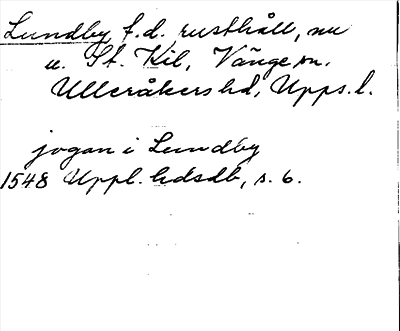 Lundby f.d. rusthåll, nu
u. St. Kil, Vänge sn.
Ulleråkers hd, Upps. l.
jogan i Lundby
1548 Uppl. hdsdb, s. 6.